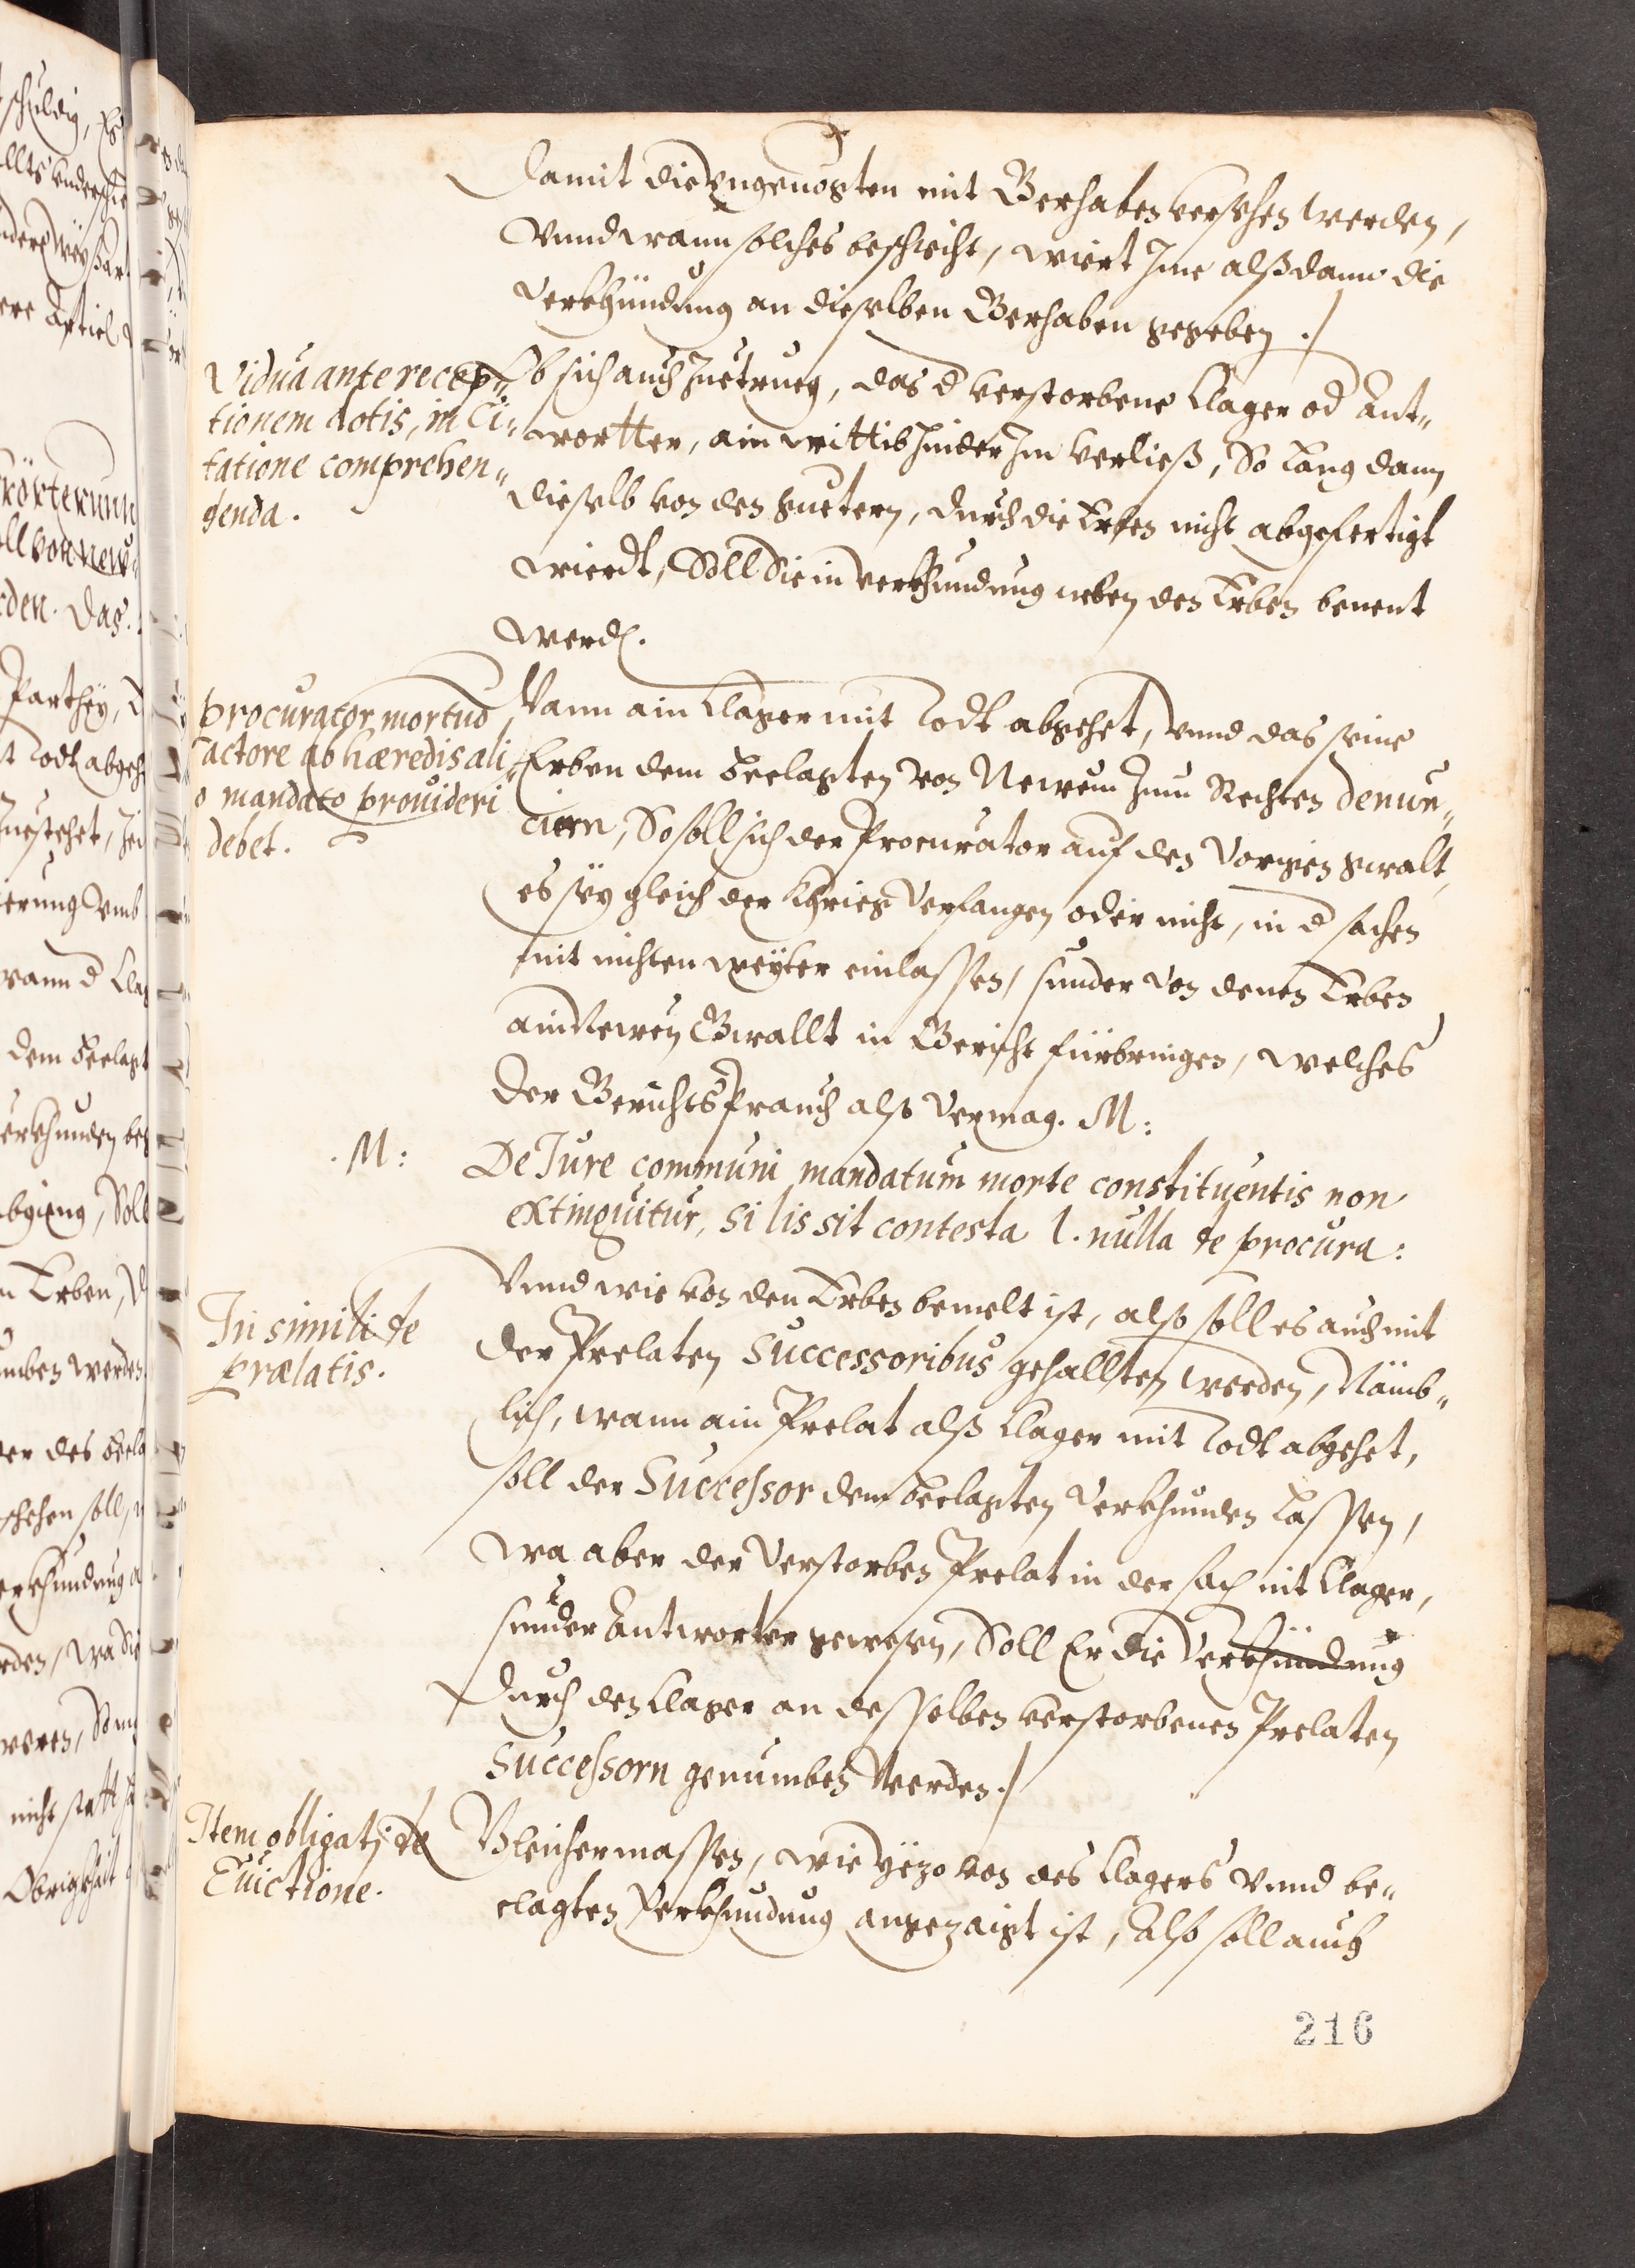 Damit die Ungeuogten mit Gerhaben versehen werden,
Vnnd wann solches beschicht, wiert Jme alßdann die
Verkhündung an dieselben Gerhaben gegeben ./
Vidua ante recep„
tionem dotis, in Ci„
tatione comprehen„
denda.
Ob sich auch Zuetrueg, das d verstorbene Clager od Ant„
wortter, ain wittib hinder Jm verließ, So lang dann
dieselb von den guetern, durch die Erben nicht abgefertigt
wierdt, Soll Sie in verkhundung neben den Erben benent
werd.
procurator mortuo
actore ab hæredis ali
o mandato prouideri
debet.
Wann ain Clager mit Todt abgehet, vnnd das seine
Erben dem Beclagten von Newem Zum Rechten denun„
ciern, So soll sich der Procurator auf den Vorigen gwalt,
es sey gleich der Khrieg Verfangen oder nicht, in d sachen
mit nichten weyter einlassen, sunder von denen Erben
ain Newen Gwallt in Gericht fürbringen, welches
der Gerichtsprauch alß Vermag. M:
.M:
De Jure communi mandatum morte constituentis non
extinguitur, si lis sit contesta l. nulla de procura:
In simili de
prælatis.
Vnnd wie von den Erben bemelt ist, also soll es auch mit
der Prelaten Successoribus gehallten werden, Nämb„
lich, wann ain Prelat alß Clager mit Todt abgehet,
soll der Successor dem Beclagten Verkhunden Lassen,
wa aber der Verstorben Prelat in der sach nit Clager,
sunder Antworter gewesen, Soll Er die Verkhündung
durch den Clager an desselben verstorbenen Prelaten
Successorn genumben Werden ./
Item obligatj de
Euictione.
Gleichermassen, wie yezo von des Clagers vnnd be„
clagten Verkhundung angezaigt ist, Also soll auch
216